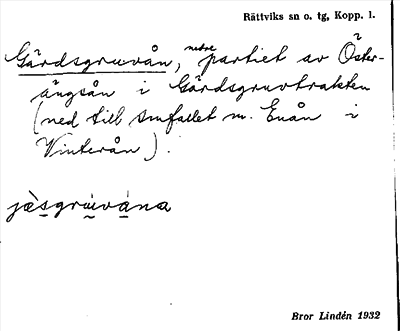 Rättviks sn o. tg, Kopp. l.
Gårdsgruvån, nedre partiet av Öster-
ängsån i Gårdsgruvtrakten
(ned till smfallet m. Enån i
Vinterån).
Bror Lindén 1932